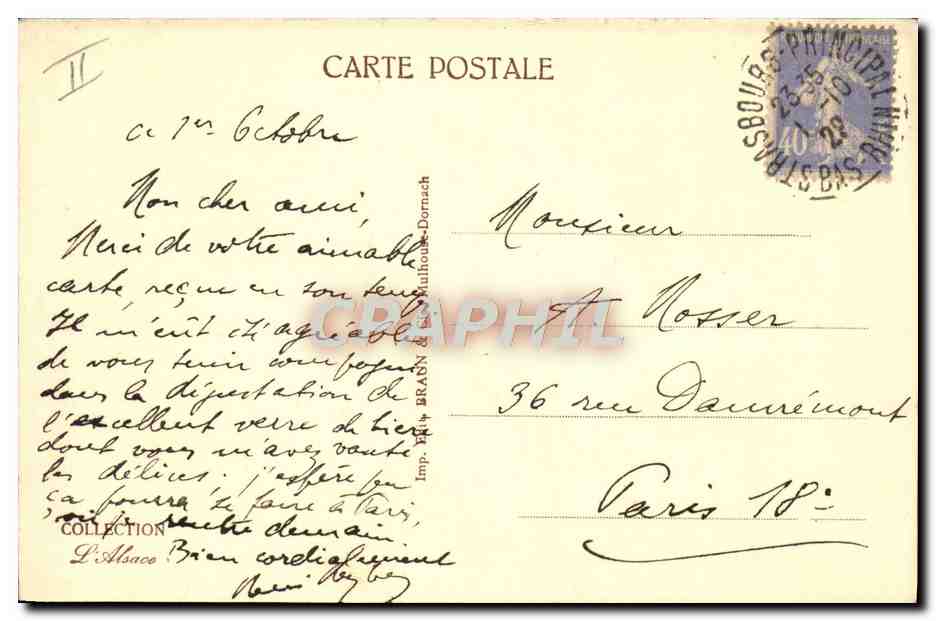 II
CARTE POSTALE
STRASBOURG-PRINCIPAL BAS RHIN
23 35
1 -10
29
40
ce 1er Octobre
Mon cher ami,
Merci de votre aimable
carte, reçue en son temps
Il m'eût été agréable
de vous tenir compagnie
dans la dégustation de
l'excellent verre de bière
dont vous m'avez vanté
les délices. j'espère que
ça pourra se faire à Paris,
où je rentre demain.
Bien cordialement
COLLECTION
L'Alsace
Imp. BRAUN & Cie, Mulhouse-Dornach
CPAPHIL
Monsieur
A. Rosser
36 rue Damrémont
Paris 18e